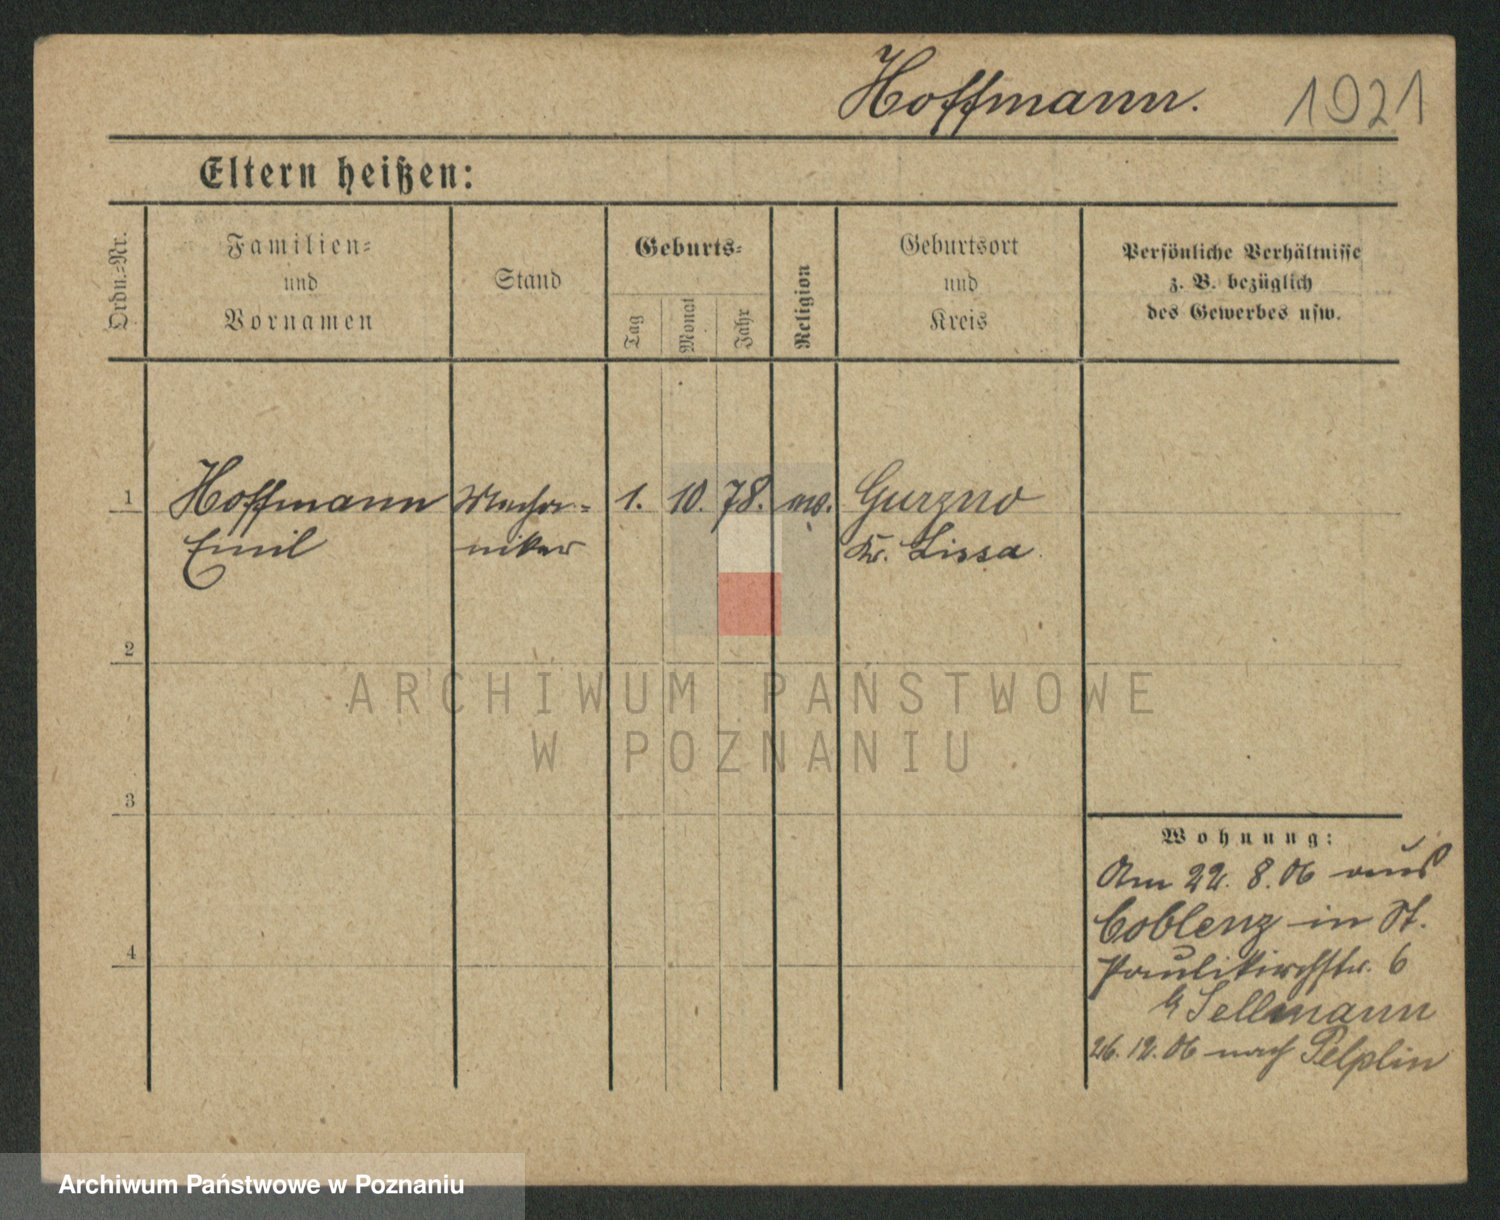 Hoffmann. 1921
Eltern heißen:
Ordn.=Nr.
Familien=
und
Vornamen
Stand
Geburts=
Tag
Monat
Jahr
Religion
Geburtsort
und
Kreis
Persönliche Verhältnisse
z. B. bezüglich
des Gewerbes usw.
1 Hoffmann Mecha= 1. 10. 78. ev. Gurzno
Emil niker Kr. Lissa.
2
3
4
Wohnung:
Am 22. 8. 06 aus
Coblenz in St.
Paulikirchstr. 6
b Sellmann
26. 12. 06 nach Pelplin
ARCHIWUM PAŃSTWOWE
W POZNANIU
Archiwum Państwowe w Poznaniu